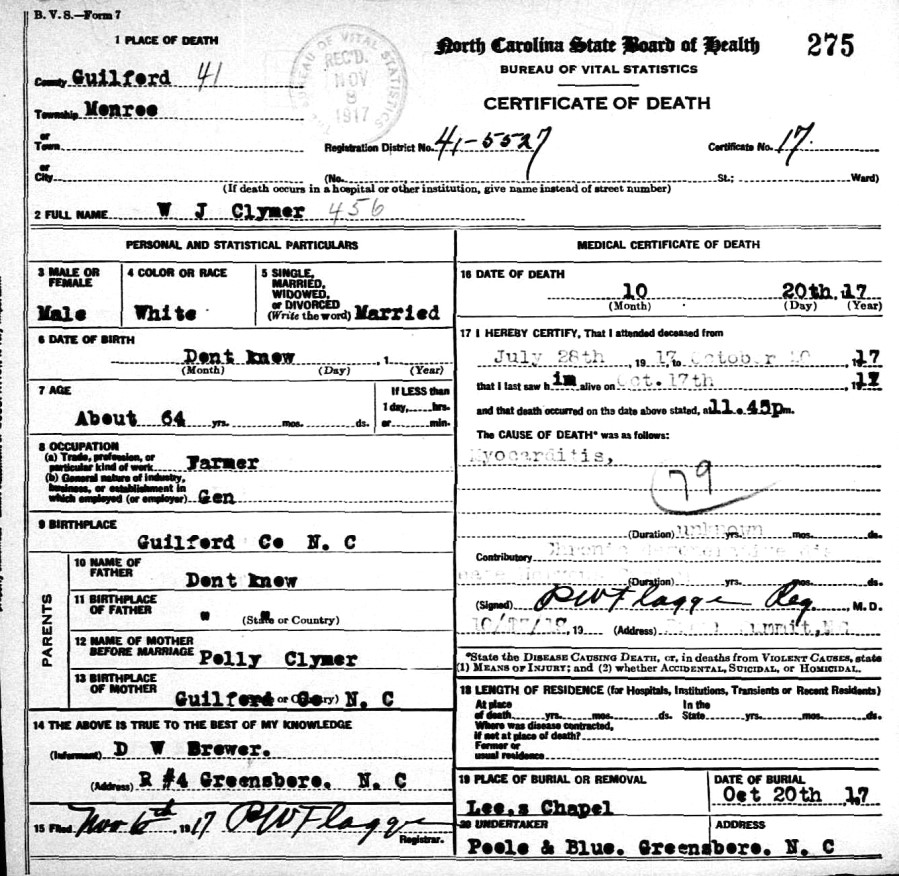 B. V. S.—Form 7
1 PLACE OF DEATH
North Carolina State Board of Health
275
BUREAU OF VITAL STATISTICS
CERTIFICATE OF DEATH
BUREAU OF VITAL STATISTICS
REC'D.
NOV
1917
County Guilford 41
Township Monroe
or
Town
Registration District No. 41-5527
Certificate No. 17.
or
City
(No. St.; Ward)
(If death occurs in a hospital or other institution, give name instead of street number)
2 FULL NAME W J Clymer 456
PERSONAL AND STATISTICAL PARTICULARS
3 MALE OR FEMALE
Male
4 COLOR OR RACE
White
5 SINGLE,
MARRIED,
WIDOWED,
or DIVORCED
(Write the word) Married
6 DATE OF BIRTH
Dont know , 1
(Month) (Day) (Year)
7 AGE
About 64 yrs. mos. ds.
If LESS than
1 day, hrs.
or min.
8 OCCUPATION
(a) Trade, profession, or
particular kind of work Farmer
(b) General nature of industry,
business, or establishment in
which employed (or employer) Gen
9 BIRTHPLACE
Guilford Co N. C
PARENTS
10 NAME OF
FATHER
Dont know
11 BIRTHPLACE
OF FATHER
" "
(State or Country)
12 NAME OF MOTHER
BEFORE MARRIAGE Polly Clymer
13 BIRTHPLACE
OF MOTHER
Guilford Co N. C
14 THE ABOVE IS TRUE TO THE BEST OF MY KNOWLEDGE
(Informant) D W Brewer.
(Address) R #4 Greensboro. N. C
15 Filed Nov 6th, 1917 P W Flagge
Registrar.
MEDICAL CERTIFICATE OF DEATH
16 DATE OF DEATH
10 20th, 17
(Month) (Day) (Year)
17 I HEREBY CERTIFY, That I attended deceased from
July 28th 1917 to October 17
that I last saw him alive on Oct. 17th 17
and that death occurred on the date above stated, at 11.45pm.
The CAUSE OF DEATH* was as follows:
Myocarditis,
79
(Duration) unknown yrs. mos. ds.
Contributory
(Duration) yrs. mos. ds.
(Signed) P W Flagge Reg. M. D.
, 19 (Address) Summit, NC
*State the DISEASE CAUSING DEATH, or, in deaths from VIOLENT CAUSES, state
(1) MEANS OF INJURY; and (2) whether ACCIDENTAL, SUICIDAL, or HOMICIDAL.
18 LENGTH OF RESIDENCE (for Hospitals, Institutions, Transients or Recent Residents)
At place In the
of death yrs. mos. ds. State yrs. mos. ds.
Where was disease contracted,
if not at place of death?
Former or
usual residence
19 PLACE OF BURIAL OR REMOVAL
Lee,s Chapel
DATE OF BURIAL
Oct 20th 17
20 UNDERTAKER
ADDRESS
Poole & Blue. Greensboro. N. C